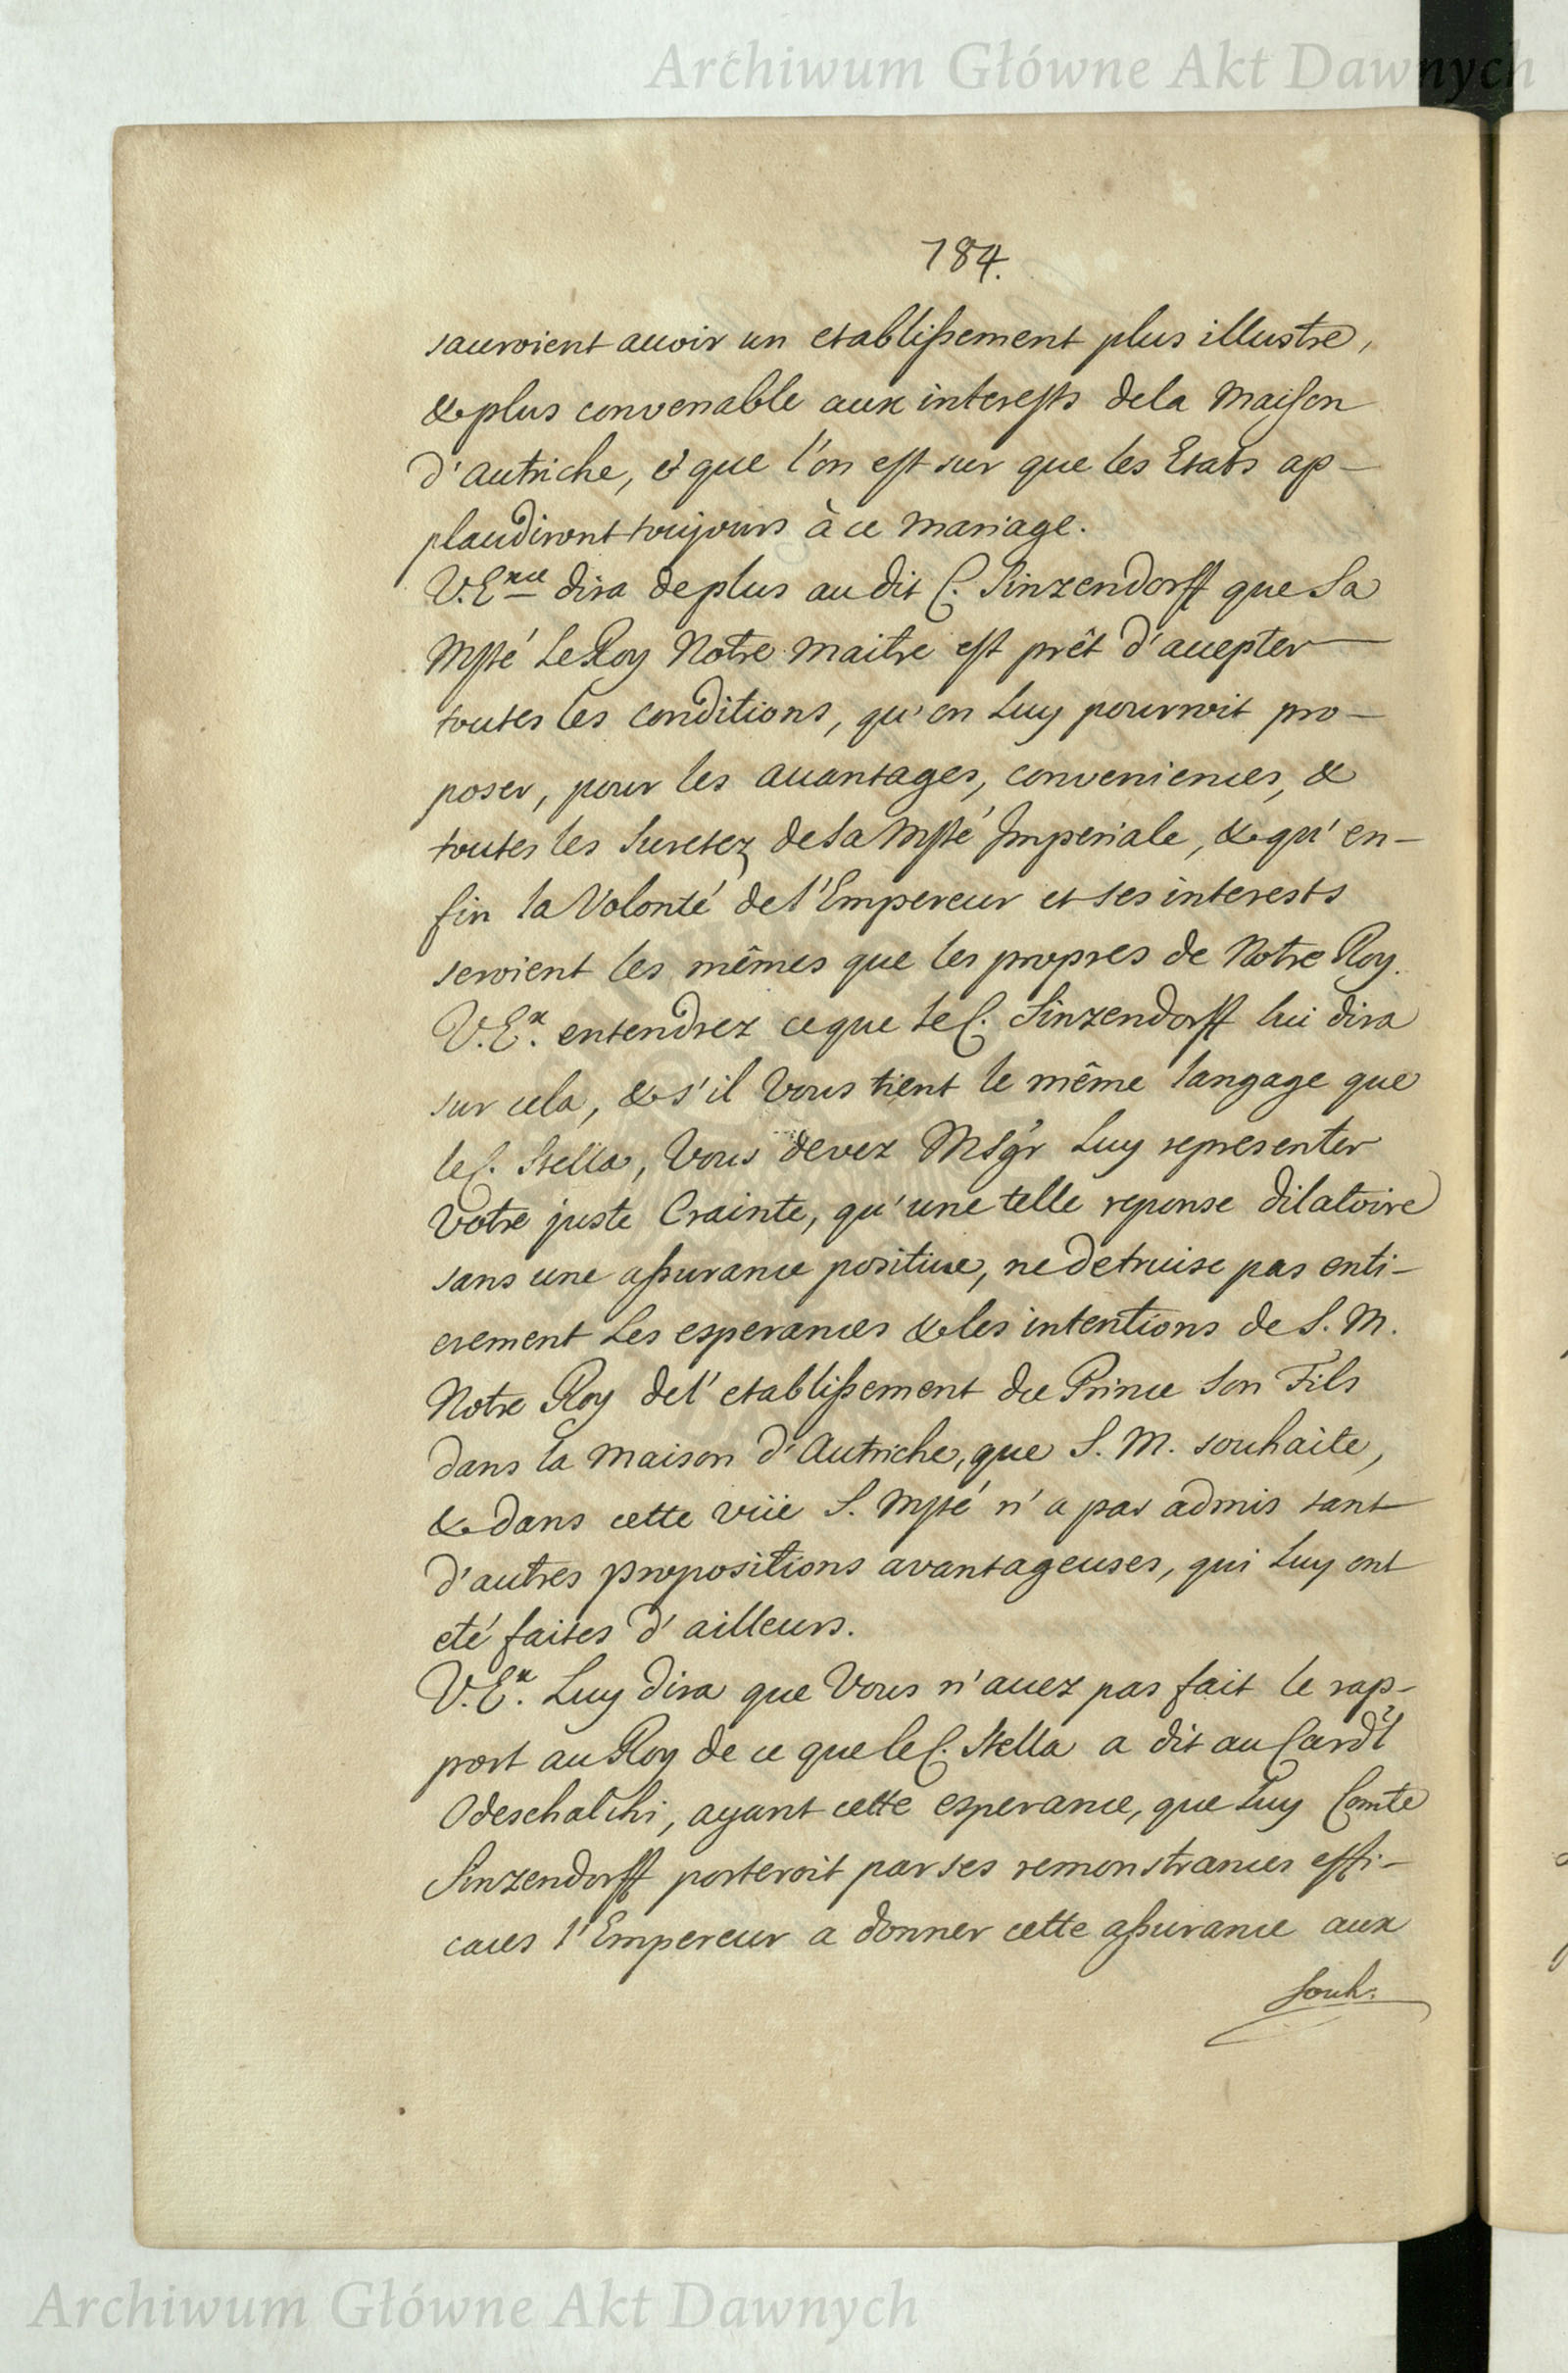 Archiwum Główne Akt Dawnych
184.
sauroient auoir un etablissement plus illustre,
& plus convenable aux interests de la Maison
d'Autriche, et que l'on est sur que les Etats ap-
plaudiront toujours à ce Mariage.
V. E.nce dira de plus au dit C. Sinzendorff que Sa
Mjté Le Roy Notre Maitre est prêt d'accepter
toutes les conditions, qu'on Luy pourroit pro-
poser, pour les auantages, conveniences, &
toutes les Suretez de Sa Mjté Imperiale, & qu'en-
fin la Volonté de l'Empereur et ses interests
seroient les mêmes que les propres de Notre Roy.
V. Ex. entendrez ce que le C. Sinzendorff lui dira
sur cela, & s'il Vous tient le même langage que
le C. Stella, Vous devez Msgr Luy representer
Votre juste Crainte, qu'une telle reponse dilatoire
sans une assurance positiue, ne detruise pas enti-
erement Les esperances & les intentions de S. M.
Notre Roy de l'etablissement du Prince Son Fils
dans la Maison d'Autriche, que S. M. souhaite,
& dans cette vüe S. Mjté n'a pas admis tant
d'autres propositions avantageuses, qui Luy ont
eté faites d'ailleurs.
V. Ex. Luy dira que Vous n'auez pas fait le rap-
port au Roy de ce que le C. Stella a dit au Cardl
Odeschalchi, ayant cette esperance, que Luy Comte
Sinzendorff porteroit par ses remonstrances effi-
caces l'Empereur a donner cette assurance aux
Souh.
Archiwum Główne Akt Dawnych